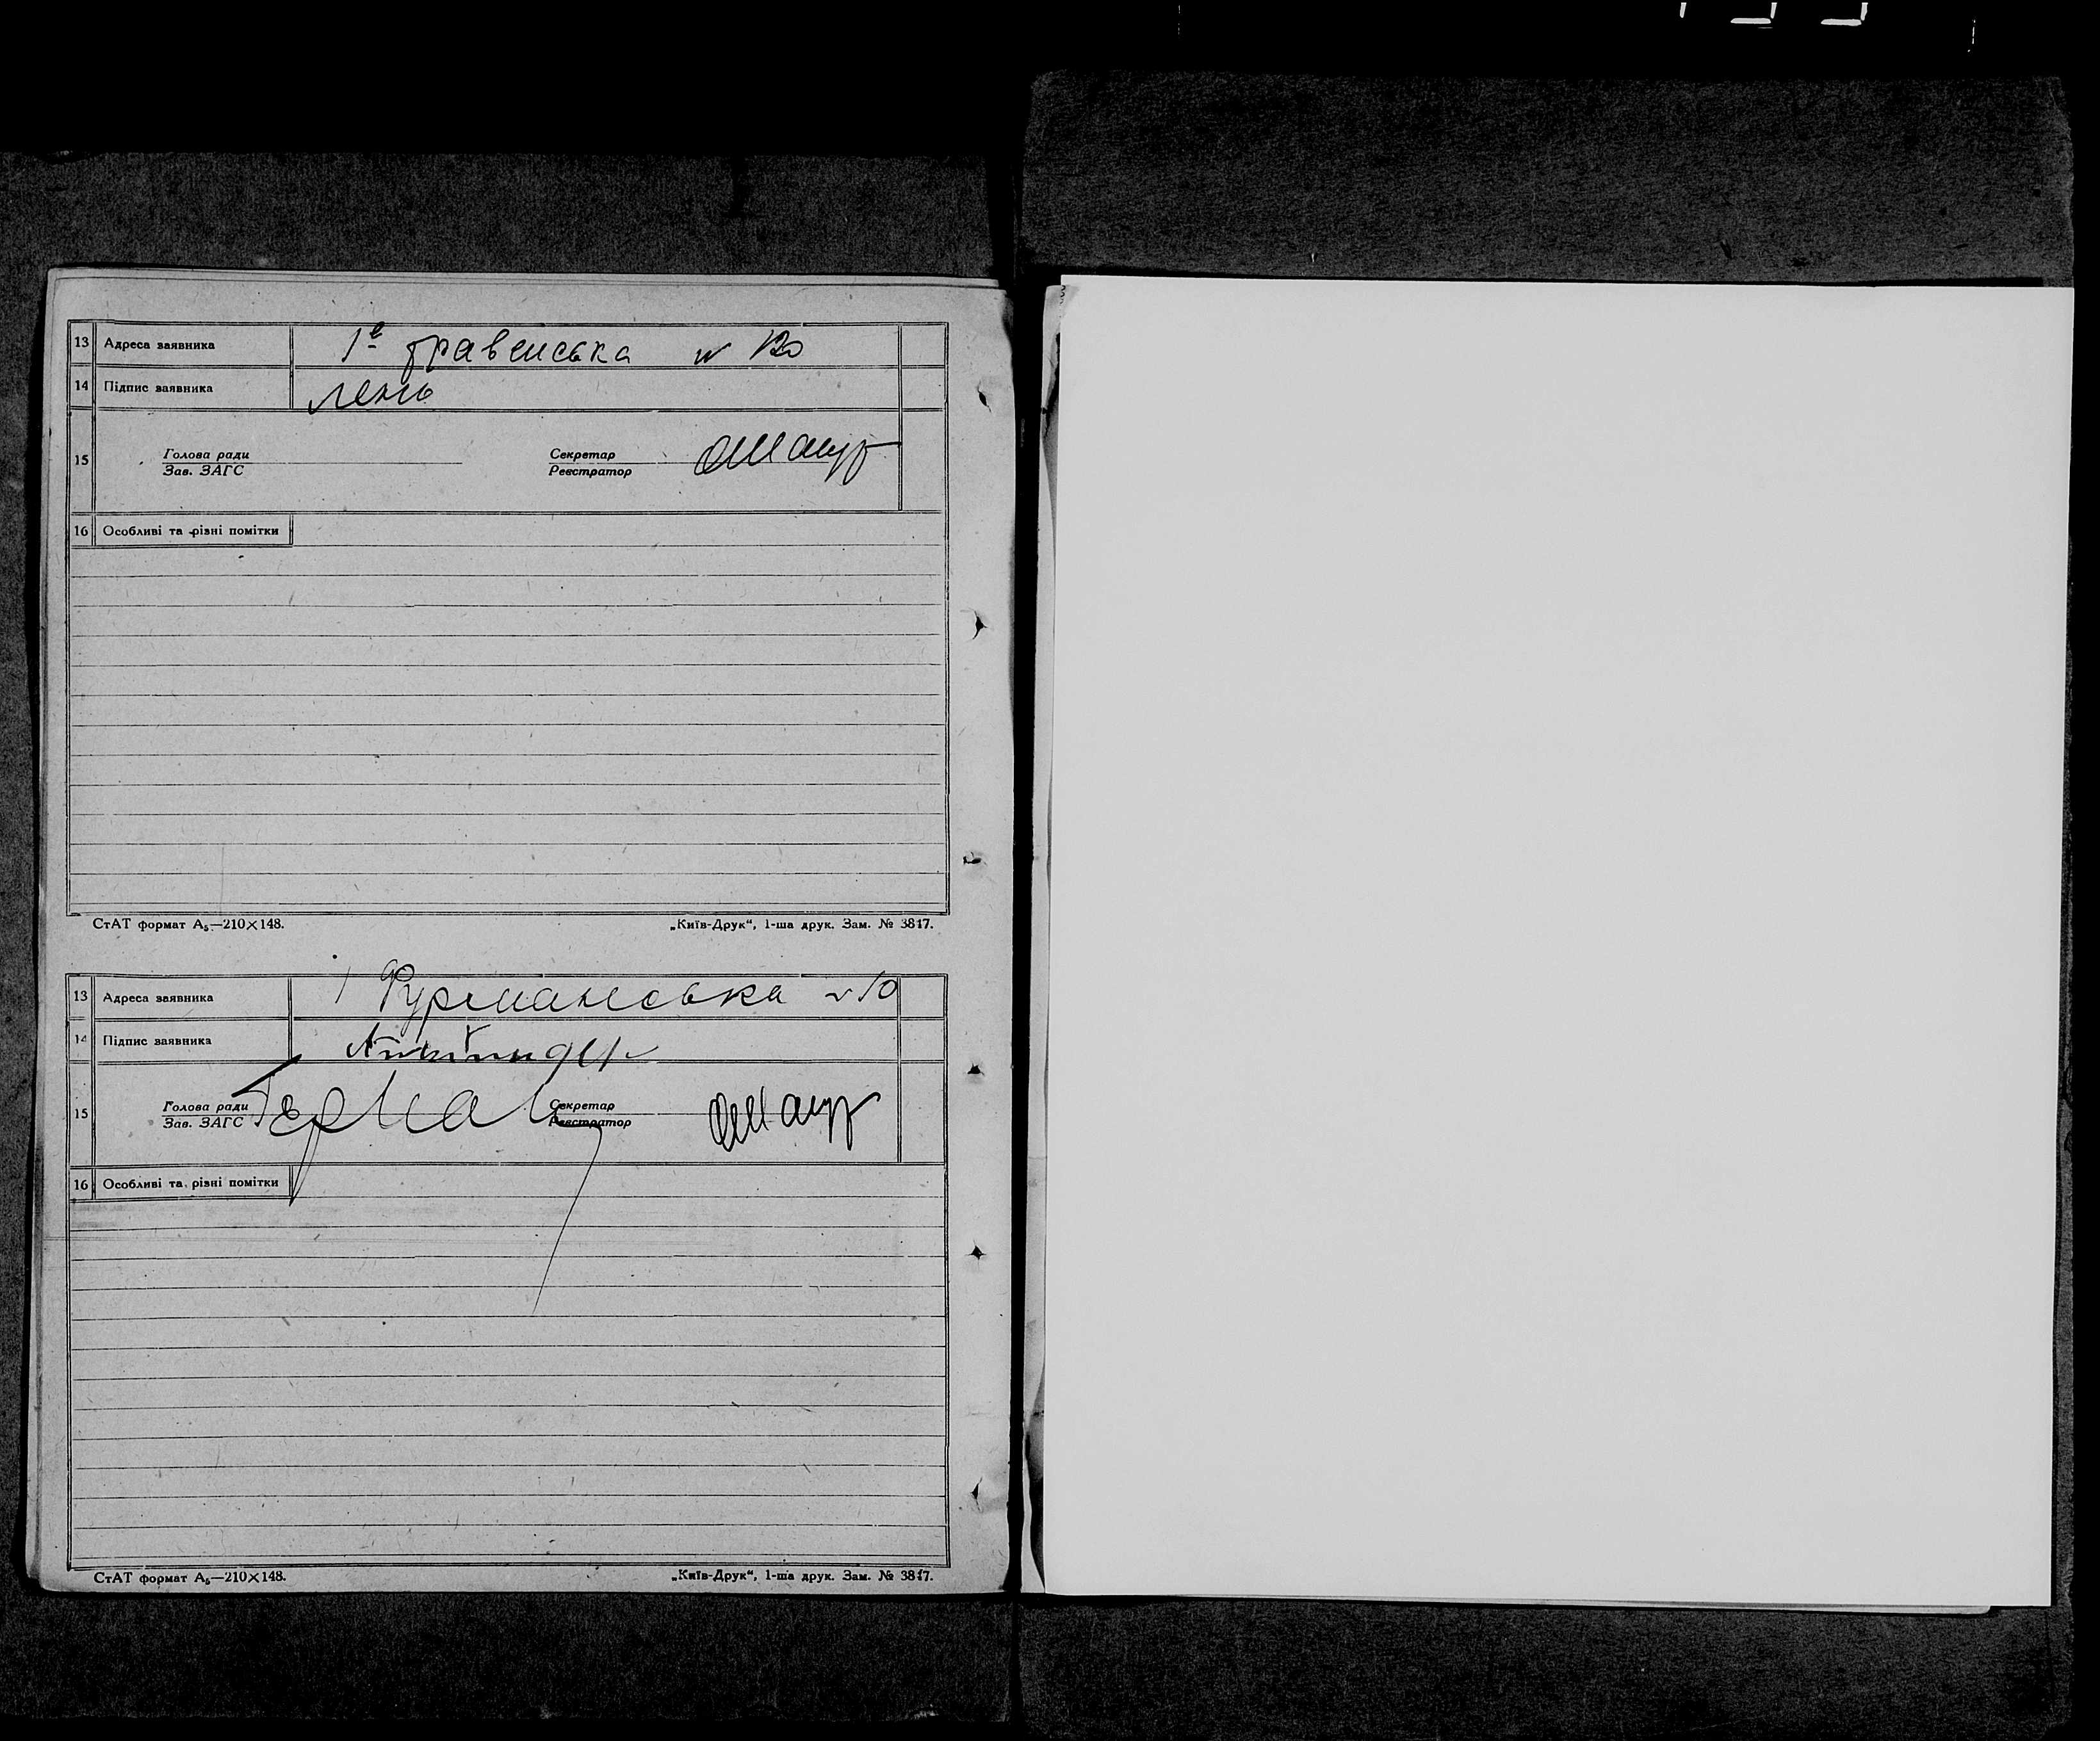 13 Адреса заявника 1а травенська № 120
14 Підпис заявника лень
15 Голова ради Секретар
Зав. ЗАГС Реєстратор
16 Особливі та різні помітки
СтАТ формат А₅—210×148. „Київ-Друк“, 1-ша друк. Зам. № 3817.
13 Адреса заявника Фурманська № 10
14 Підпис заявника
15 Голова ради Секретар
Зав. ЗАГС Реєстратор
16 Особливі та різні помітки
СтАТ формат А₅—210×148. „Київ-Друк“, 1-ша друк. Зам. № 3817.